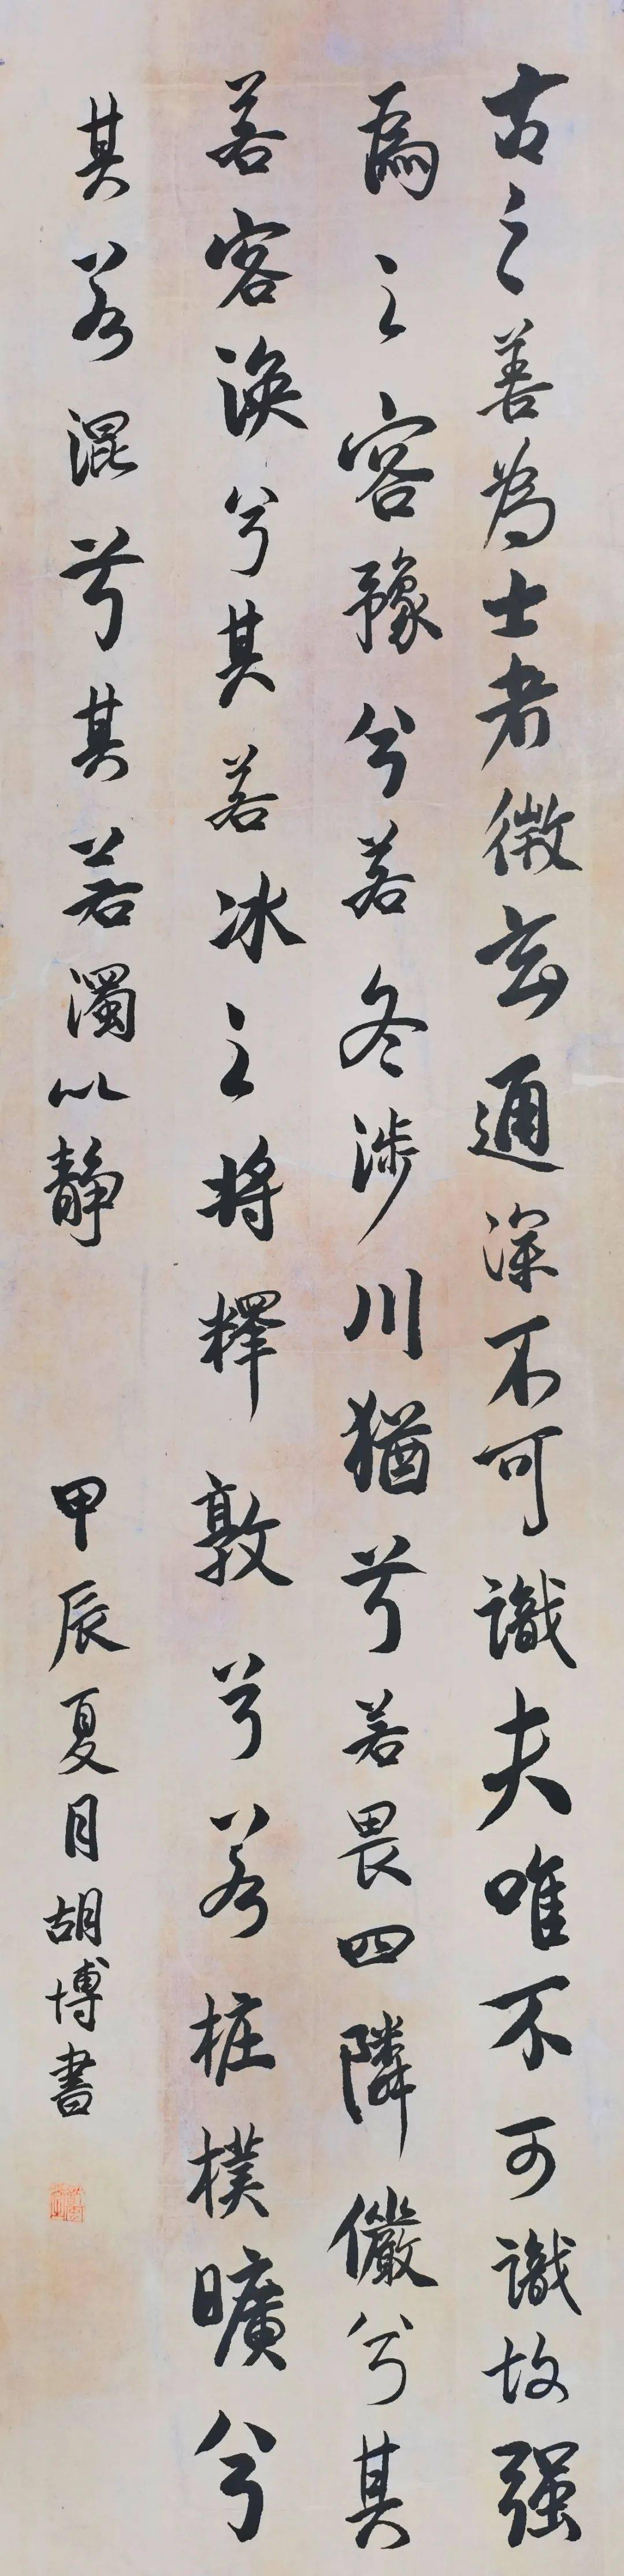 古之善為士者微玄通深不可識夫唯不可識故强
為之容豫兮若冬涉川猶兮若畏四隣儼兮其
若容涣兮其若冰之将釋敦兮若樸曠兮
其若混兮其若濁以静
甲辰夏月胡博書